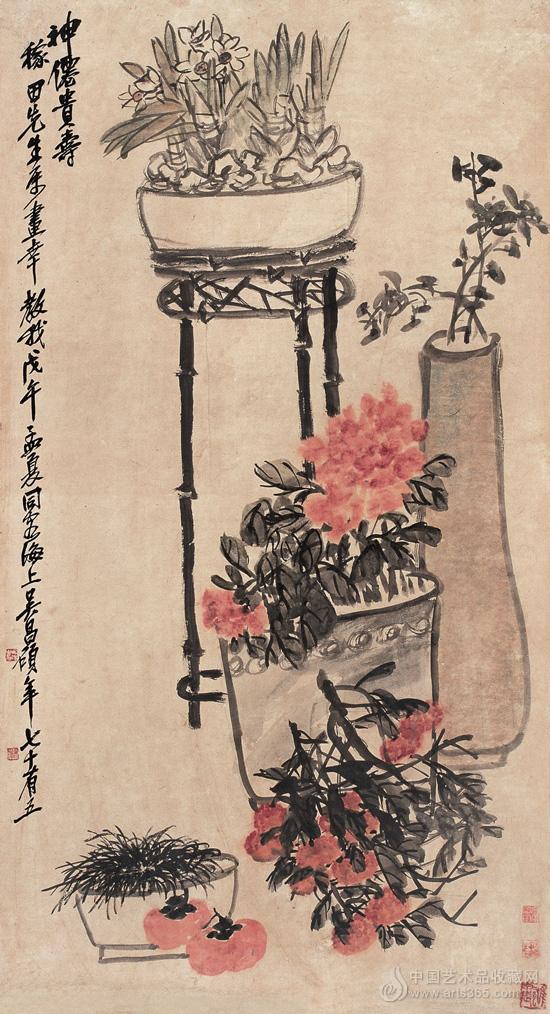 神僊貴壽
稼田先生索畫幸教我戊午孟夏同客海上吳昌碩年七十有五
中国艺术品收藏网
www.arts365.com